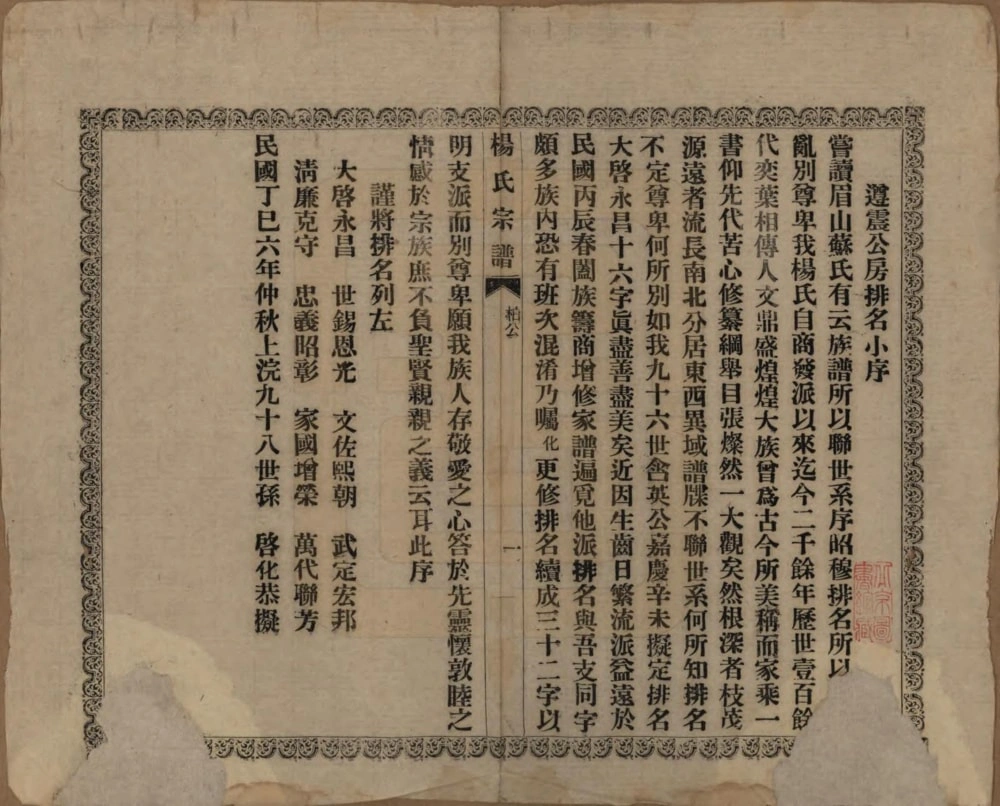 遵震公房排名小序
嘗讀眉山蘇氏有云族譜所以聯世系序昭穆排名所以
亂別尊卑我楊氏自商發派以來迄今二千餘年歷世壹百餘
代奕葉相傳人文鼎盛煌煌大族曾爲古今所美稱而家乘一
書仰先代苦心修纂綱舉目張燦然一大觀矣然根深者枝茂
源遠者流長南北分居東西異域譜牒不聯世系何所知排名
不定尊卑何所別如我九十六世含英公嘉慶辛未擬定排名
大啓永昌十六字眞盡善盡美矣近因生齒日繁流派益遠於
民國丙辰春闔族籌商增修家譜遍覓他派排名與吾支同字
頗多族內恐有班次混淆乃囑化更修排名續成三十二字以
楊氏宗譜
柏公
一
明支派而別尊卑願我族人存敬愛之心答於先靈懷敦睦之
情感於宗族庶不負聖賢親親之義云耳此序
謹將排名列左
大啓永昌 世錫恩光 文佐熙朝 武定宏邦
淸廉克守 忠義昭彰 家國增榮 萬代聯芳
民國丁巳六年仲秋上浣九十八世孫 啓化恭擬